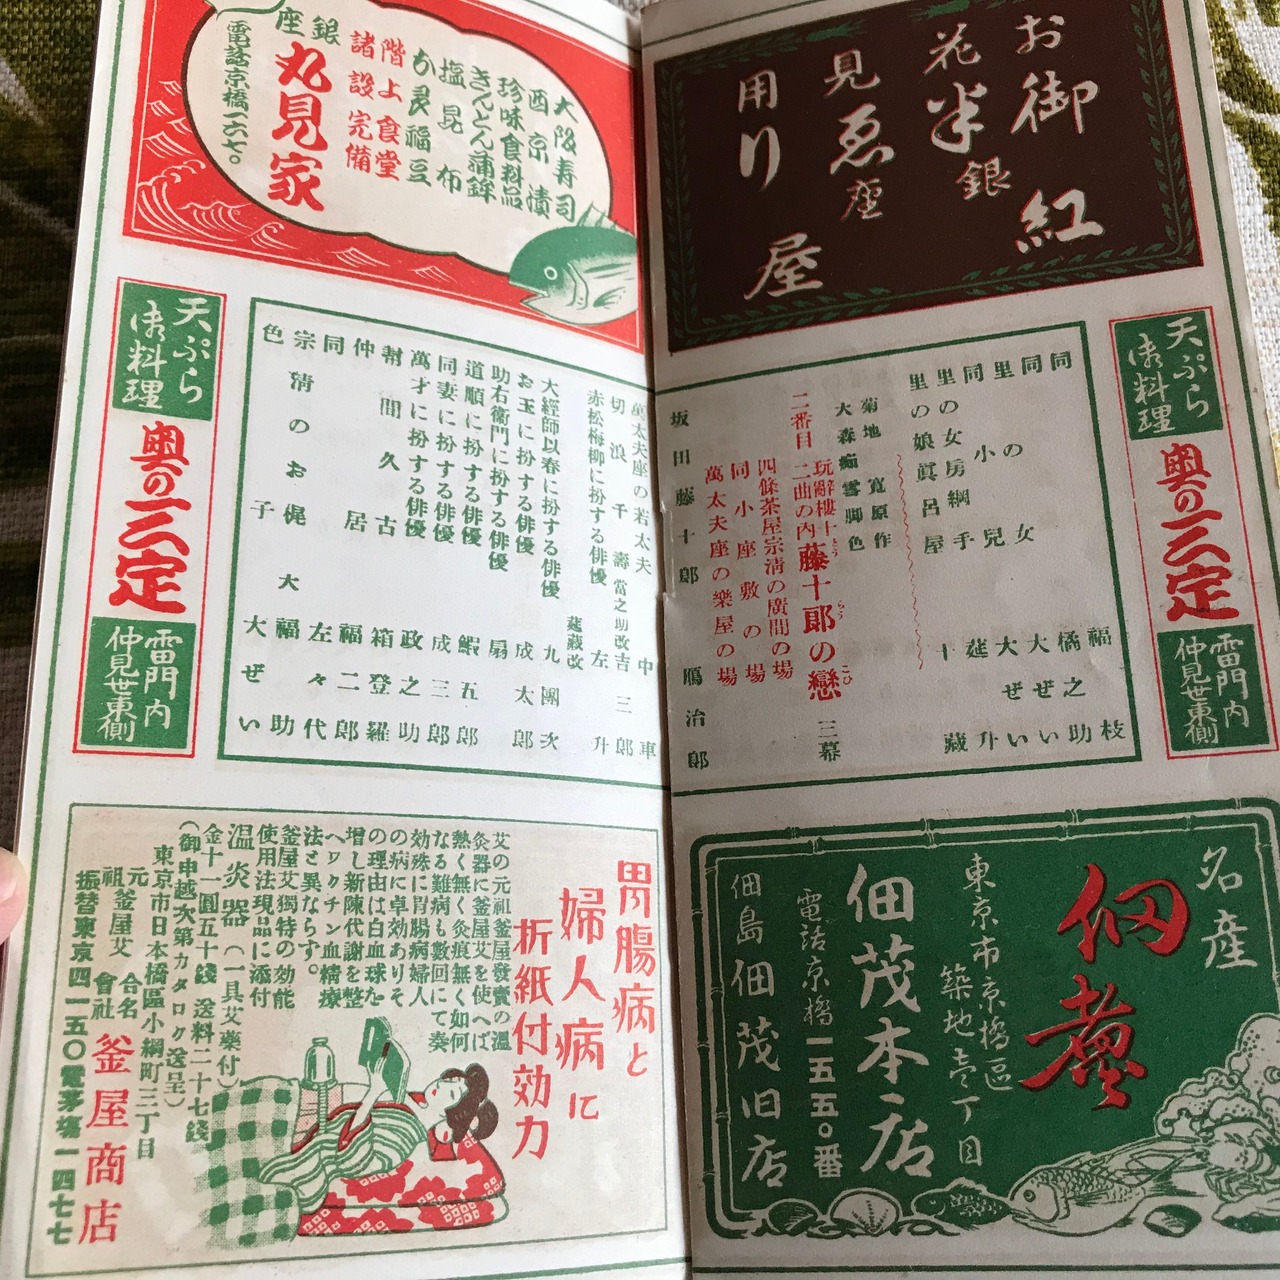 お花見御用
半ゑり
銀座
紅屋
天ぷら
御料理
奥の三定
雷門内
仲見世東側
同 福枝
同 女 橘之助
里の小兒 大ぜい
同 大ぜい
里の女房綱手 莚升
里の娘眞呂屋 十藏
菊地寛原作
大森痴雪脚色
玩辭樓十二曲の内
二番目 藤十郎の戀 三幕
とう
らう
こひ
四條茶屋宗清の廣間の場
同小座敷の場
萬太夫座の樂屋の場
坂田藤十郎 鴈治郎
名産
佃煮
東京市京橋區
築地壱丁目
佃茂本店
電話京橋一五五〇番
佃島佃茂旧店
大阪寿司
西京漬
珍味食料品
きんとん蒲鉾
塩昆布
お良福豆
階上食堂
諸設完備
銀座
丸見家
電話京橋一六七〇
萬太夫座の若太夫 中車
切浪千壽 當之助改吉三郎
赤松梅柳に扮する俳優 左升
莚藏改
大經師以春に扮する俳優 九團次
お玉に扮する俳優 成太郎
助右衞門に扮する俳優 扇
道順に扮する俳優 蝦五郎
同妻に扮する俳優 成三郎
萬才に扮する俳優 政之助
幇間久古 箱登羅
仲居 福二郎
同 左々代
宗清のお梶 大 福助
色子 大ぜい
天ぷら
御料理
奥の三定
雷門内
仲見世東側
胃腸病と
婦人病に
折紙付効力
艾の元祖釜屋發賣の溫
灸器に釜屋艾を使へば
熱く無く灸痕無く如何
なる難病も數回にて奏
効殊に胃腸病婦人
の病に卓効ありそ
の理由は白血球を
増し新陳代謝を整
へワクチン血精療
法と異ならず。
釜屋艾獨特の効能
使用法現品に添付
溫灸器(一具艾藥付)
金十一圓五十錢 送料二十七錢
(御申越次第カタログ送呈)
東京市日本橋區小網町三丁目
元祖釜屋艾 合名會社 釜屋商店
振替東京四一五〇電茅場一四七七